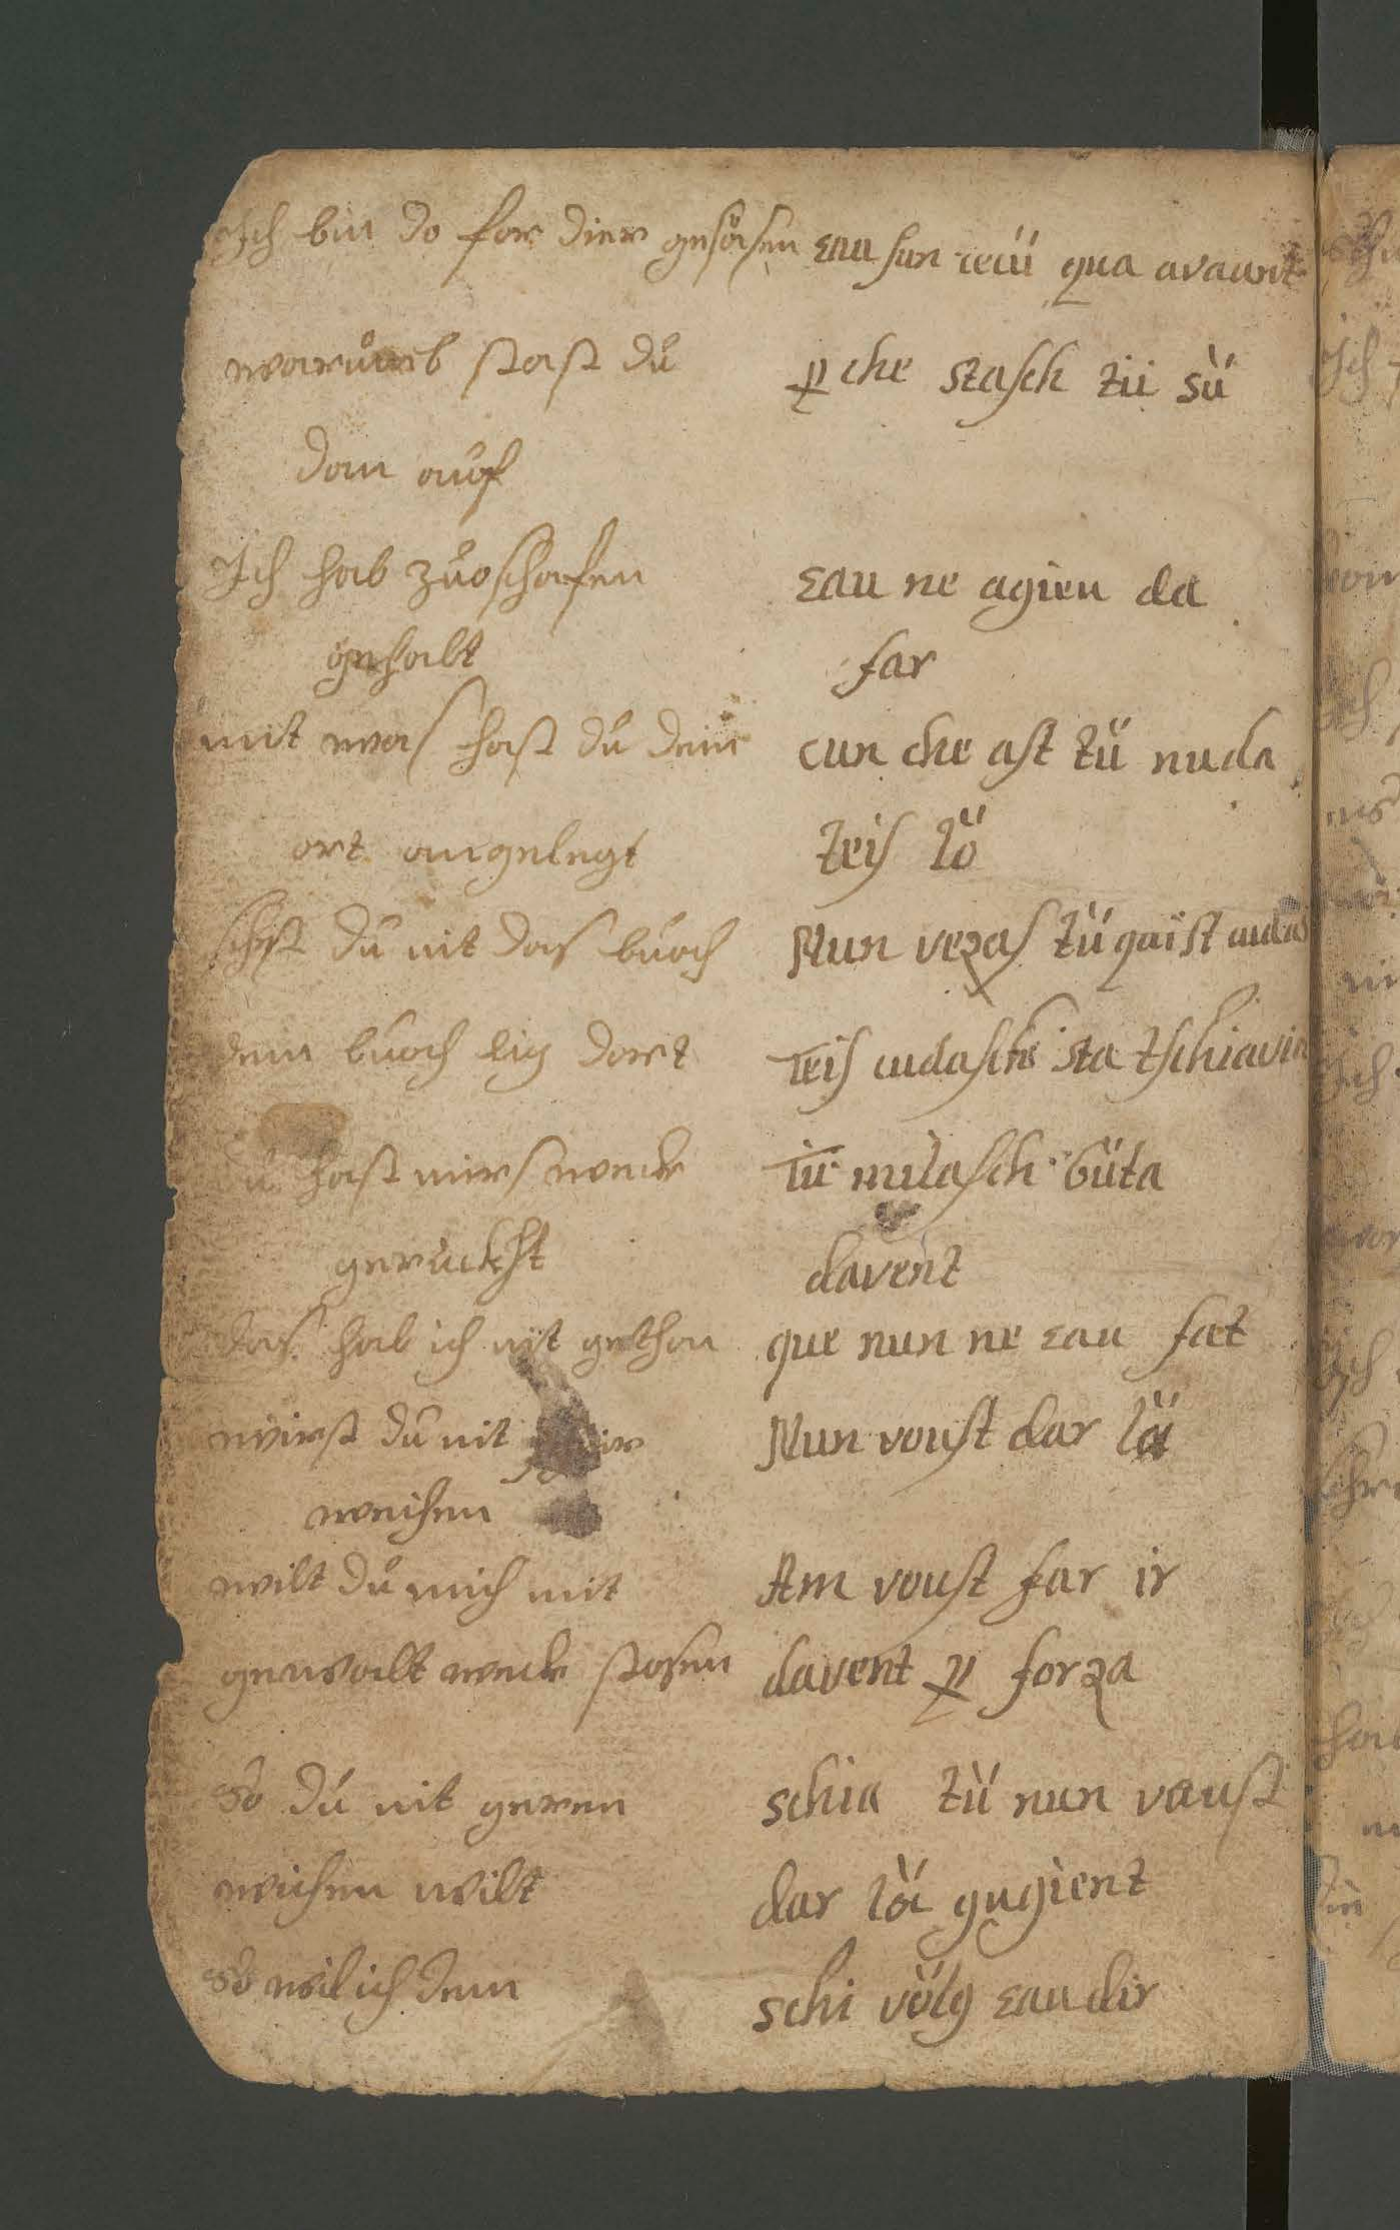 Ich bin do for dier gesäsen eau sun ieüi qua avaunt
warůmb stast dů ꝑche stasch tü sü
dan auf
Ich hab zůoschafen eau ne agieu da
gehabt far
mit was hast dů dein cun che ast tü nuda
ort angelegt teis lö
sihst du nit das buoch Nun vezas tü qaist cudas
dein buoch lig dort Teis cudaschi sta tschiavia
hast mirs weck Tü milasch büta
geruckht davent
das hab ich nit gethon que nun ne eau fat
wirst dů nit Nun voust dar lö
weihen
wilt dů mich mit Am voust far ir
gewalt weck stosen davent ꝑ forza
So du nit geren schia tü nun voust
weihen wilt dar lö gugient
So wil ich dem schi völg eau dir